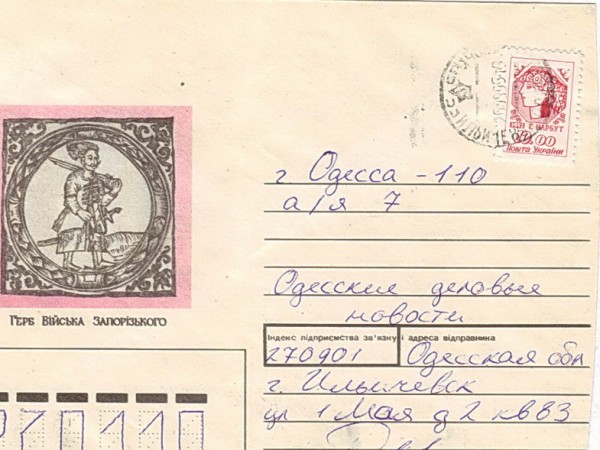 г. Одесса - 110
а/я 7
Одесские деловые
новости
Індекс підприємства зв'язку і адреса відправника
270901 Одесская обл
г. Ильичевск
ул 1 Мая д 2 кв 83
ГЕРБ ВІЙСЬКА ЗАПОРІЗЬКОГО
Г. НАРБУТ
ПОШТА УКРАЇНИ
70110